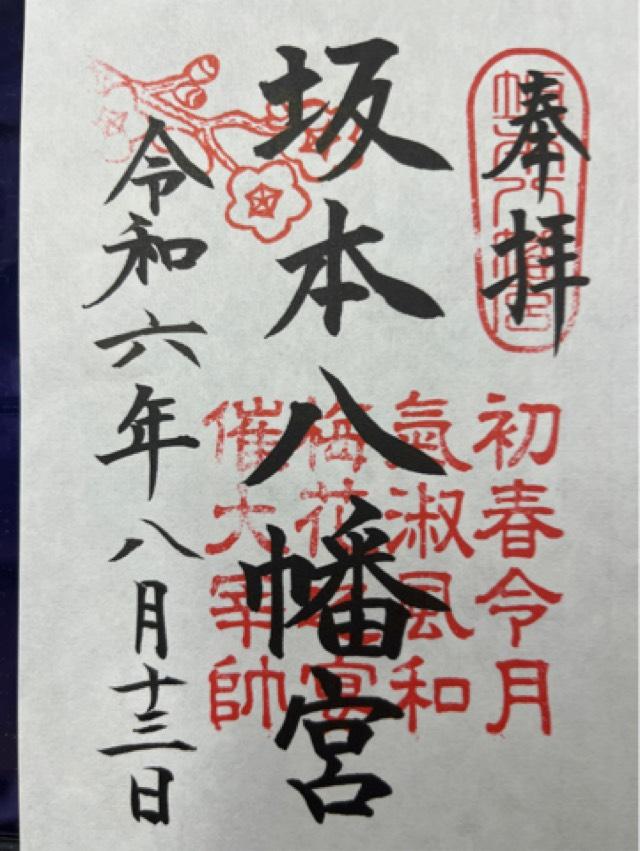 奉拝
坂本八幡宮
初春令月
氣淑風和
梅花之宴
催大宰帥
令和六年八月十三日